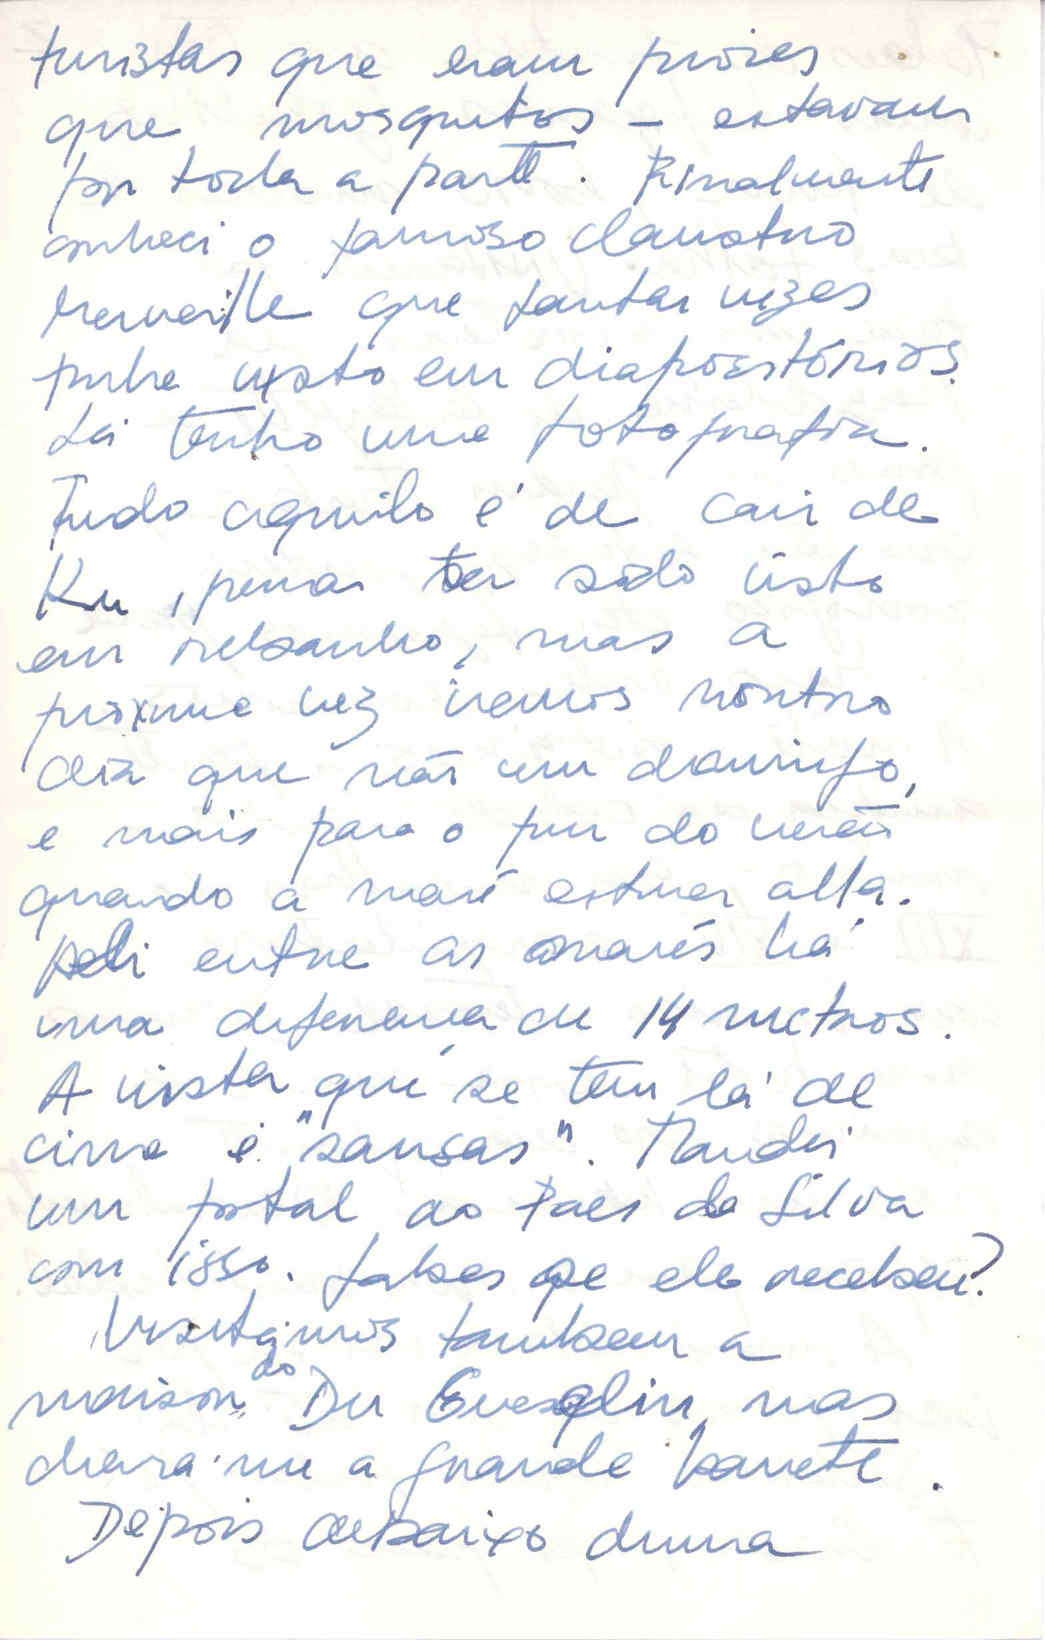 turistas que eram piores
que mosquitos – estavam
por toda a parte. Finalmente
conheci o famoso claustro
Merveille que tantas vezes
tinha visto em diapositivos.
Lá tenho uma fotografia.
Tudo aquilo é de cair de
Ku, pena ter sido visto
em rebanho, mas a
próxima vez iremos noutro
dia que não um domingo,
e mais para o fim do verão
quando a maré estiver alta.
Ali entre as marés há
uma diferença de 14 metros.
A vista que se tem lá de
cima é "sanças". Mandei
um postal ao Paes da Silva
com isso. Sabes se ele recebeu?
Visitamos tambem a
maison do Du Guesclin, mas
cheira-me a grande barrete.
Depois debaixo duma